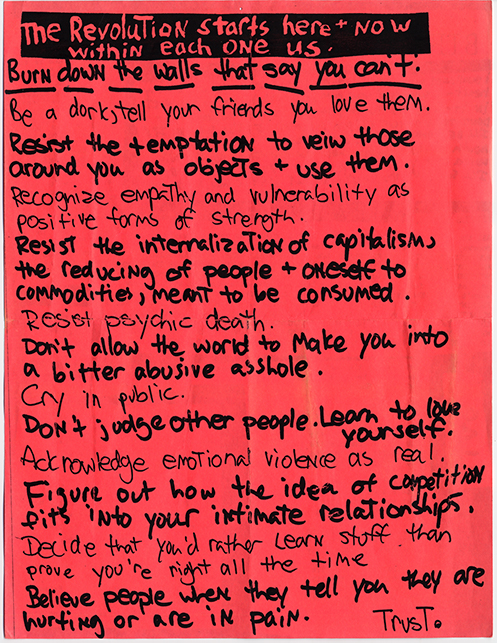 The Revolution starts here + now
within each one us.
Burn down the walls that say you can't.
Be a dork, tell your friends you love them.
Resist the temptation to veiw those
around you as objects + use them.
Recognize empathy and vulnerability as
positive forms of strength.
Resist the internalization of capitalism,
the reducing of people + oneself to
commodities, meant to be consumed.
Resist psychic death.
Don't allow the world to make you into
a bitter abusive asshole.
Cry in public.
Don't judge other people. Learn to love
yourself.
Acknowledge emotional violence as real.
Figure out how the idea of competition
fits into your intimate relationships.
Decide that you'd rather learn stuff than
prove you're right all the time
Believe people when they tell you they are
hurting or are in pain.
Trust.